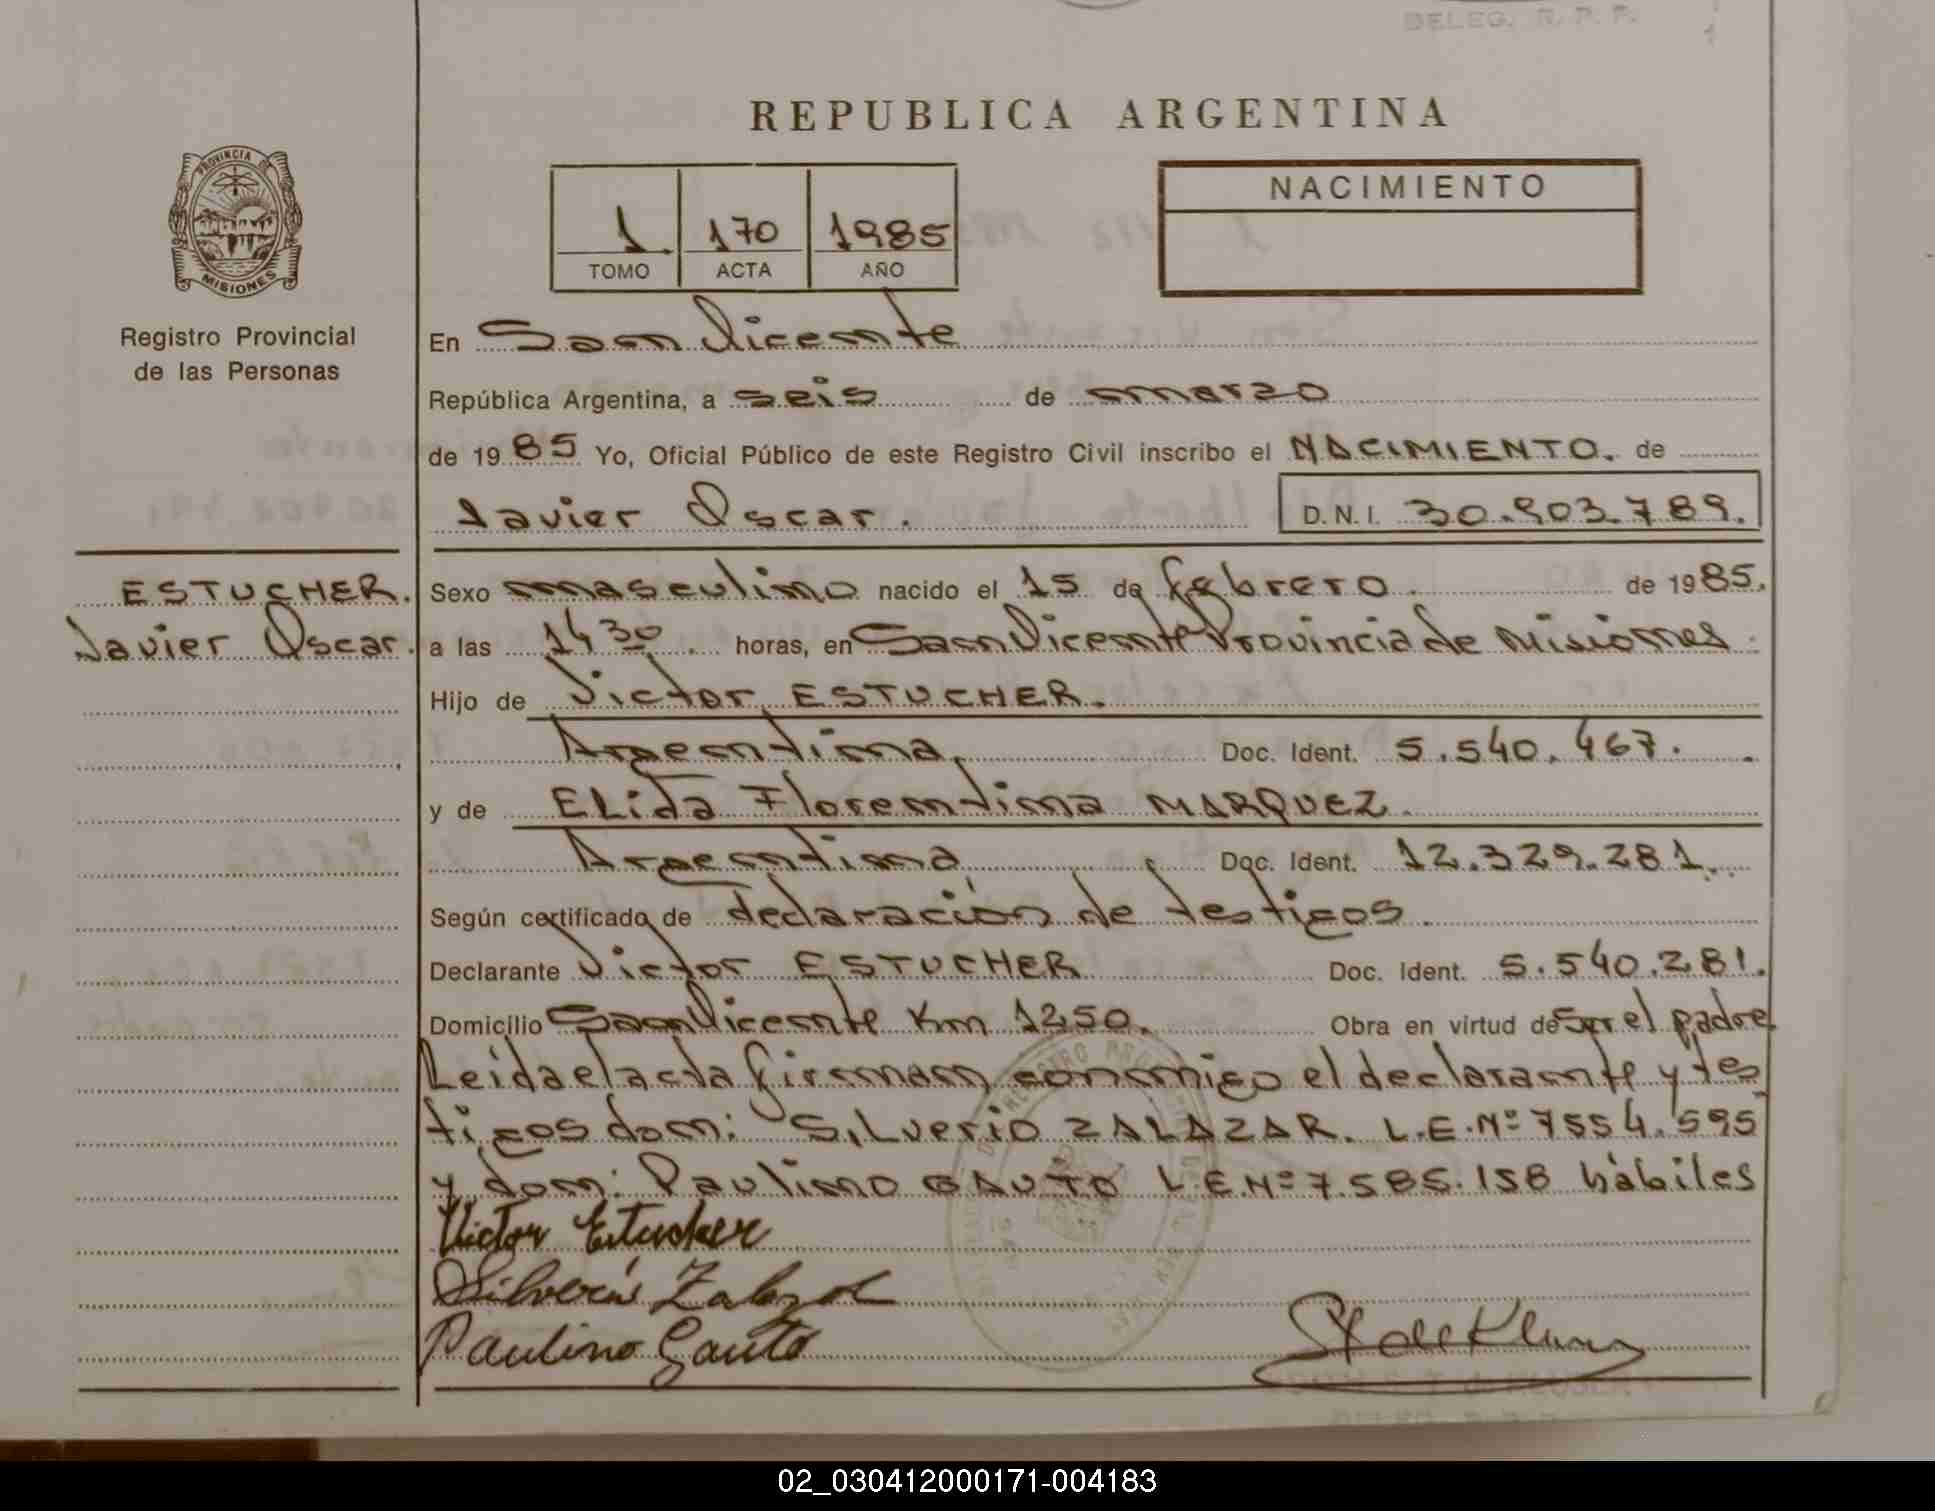 DELEG. R. P. P.
REPUBLICA ARGENTINA
PROVINCIA DE
MISIONES
Registro Provincial
de las Personas
1 170 1985
TOMO ACTA AÑO
NACIMIENTO
En San Vicente
República Argentina, a seis de marzo
de 1985 Yo, Oficial Público de este Registro Civil inscribo el NACIMIENTO. de
Javier Oscar. D.N.I. 30.903.789.
ESTUCHER.
Javier Oscar.
Sexo masculino nacido el 15 de febrero de 1985.
a las 14 30 horas, en San Vicente Provincia de Misiones
Hijo de Victor ESTUCHER.
Argentina Doc. Ident. 5.540.467.
y de ELida Florentina MARQUEZ.
Argentina Doc. Ident. 12.329.281.
Según certificado de declaración de testigos.
Declarante Victor ESTUCHER Doc. Ident. 5.540.281.
Domicilio San Vicente Km 1250. Obra en virtud de ser el padre
Leida el acta firman conmigo el declarante y tes
tigos don: SiLverio ZALAZAR. L.E.Nº 7554.595
y don: Paulino GAUTO L.E.Nº 7.585.158 hábiles
Victor Estucher
Silverio Zalazar
Paulino Gauto
02_030412000171-004183